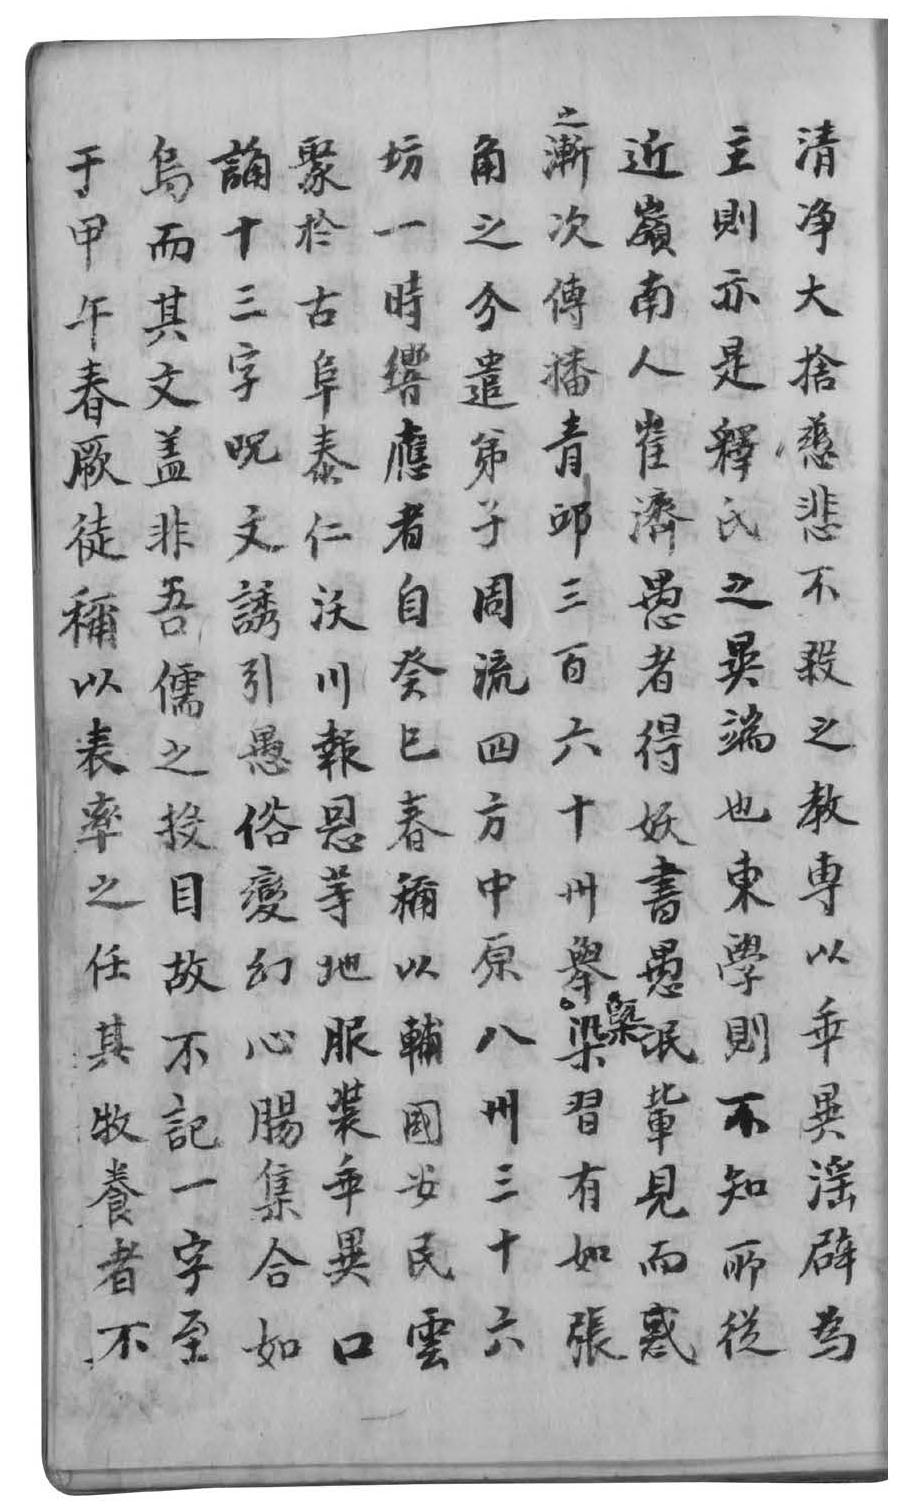 清净大捨慈悲不殺之教専以乖異滛辟為
主則亦是釋氏之異端也東學則不知所從
近嶺南人崔濟愚者得妖書愚氓輩見而惑
之漸次傳播青邱三百六十州舉槩染習有如張
角之分遣弟子周流四方中原八州三十六
坊一時響應者自癸巳春稱以輔國安民雲
聚於古阜泰仁沃川報恩等地服裝乖異口
誦十三字呪文誘引愚俗變幻心腸集合如
烏而其文盖非吾儒之投目故不記一字至
于甲午春厥徒稱以表率之任其牧養者不